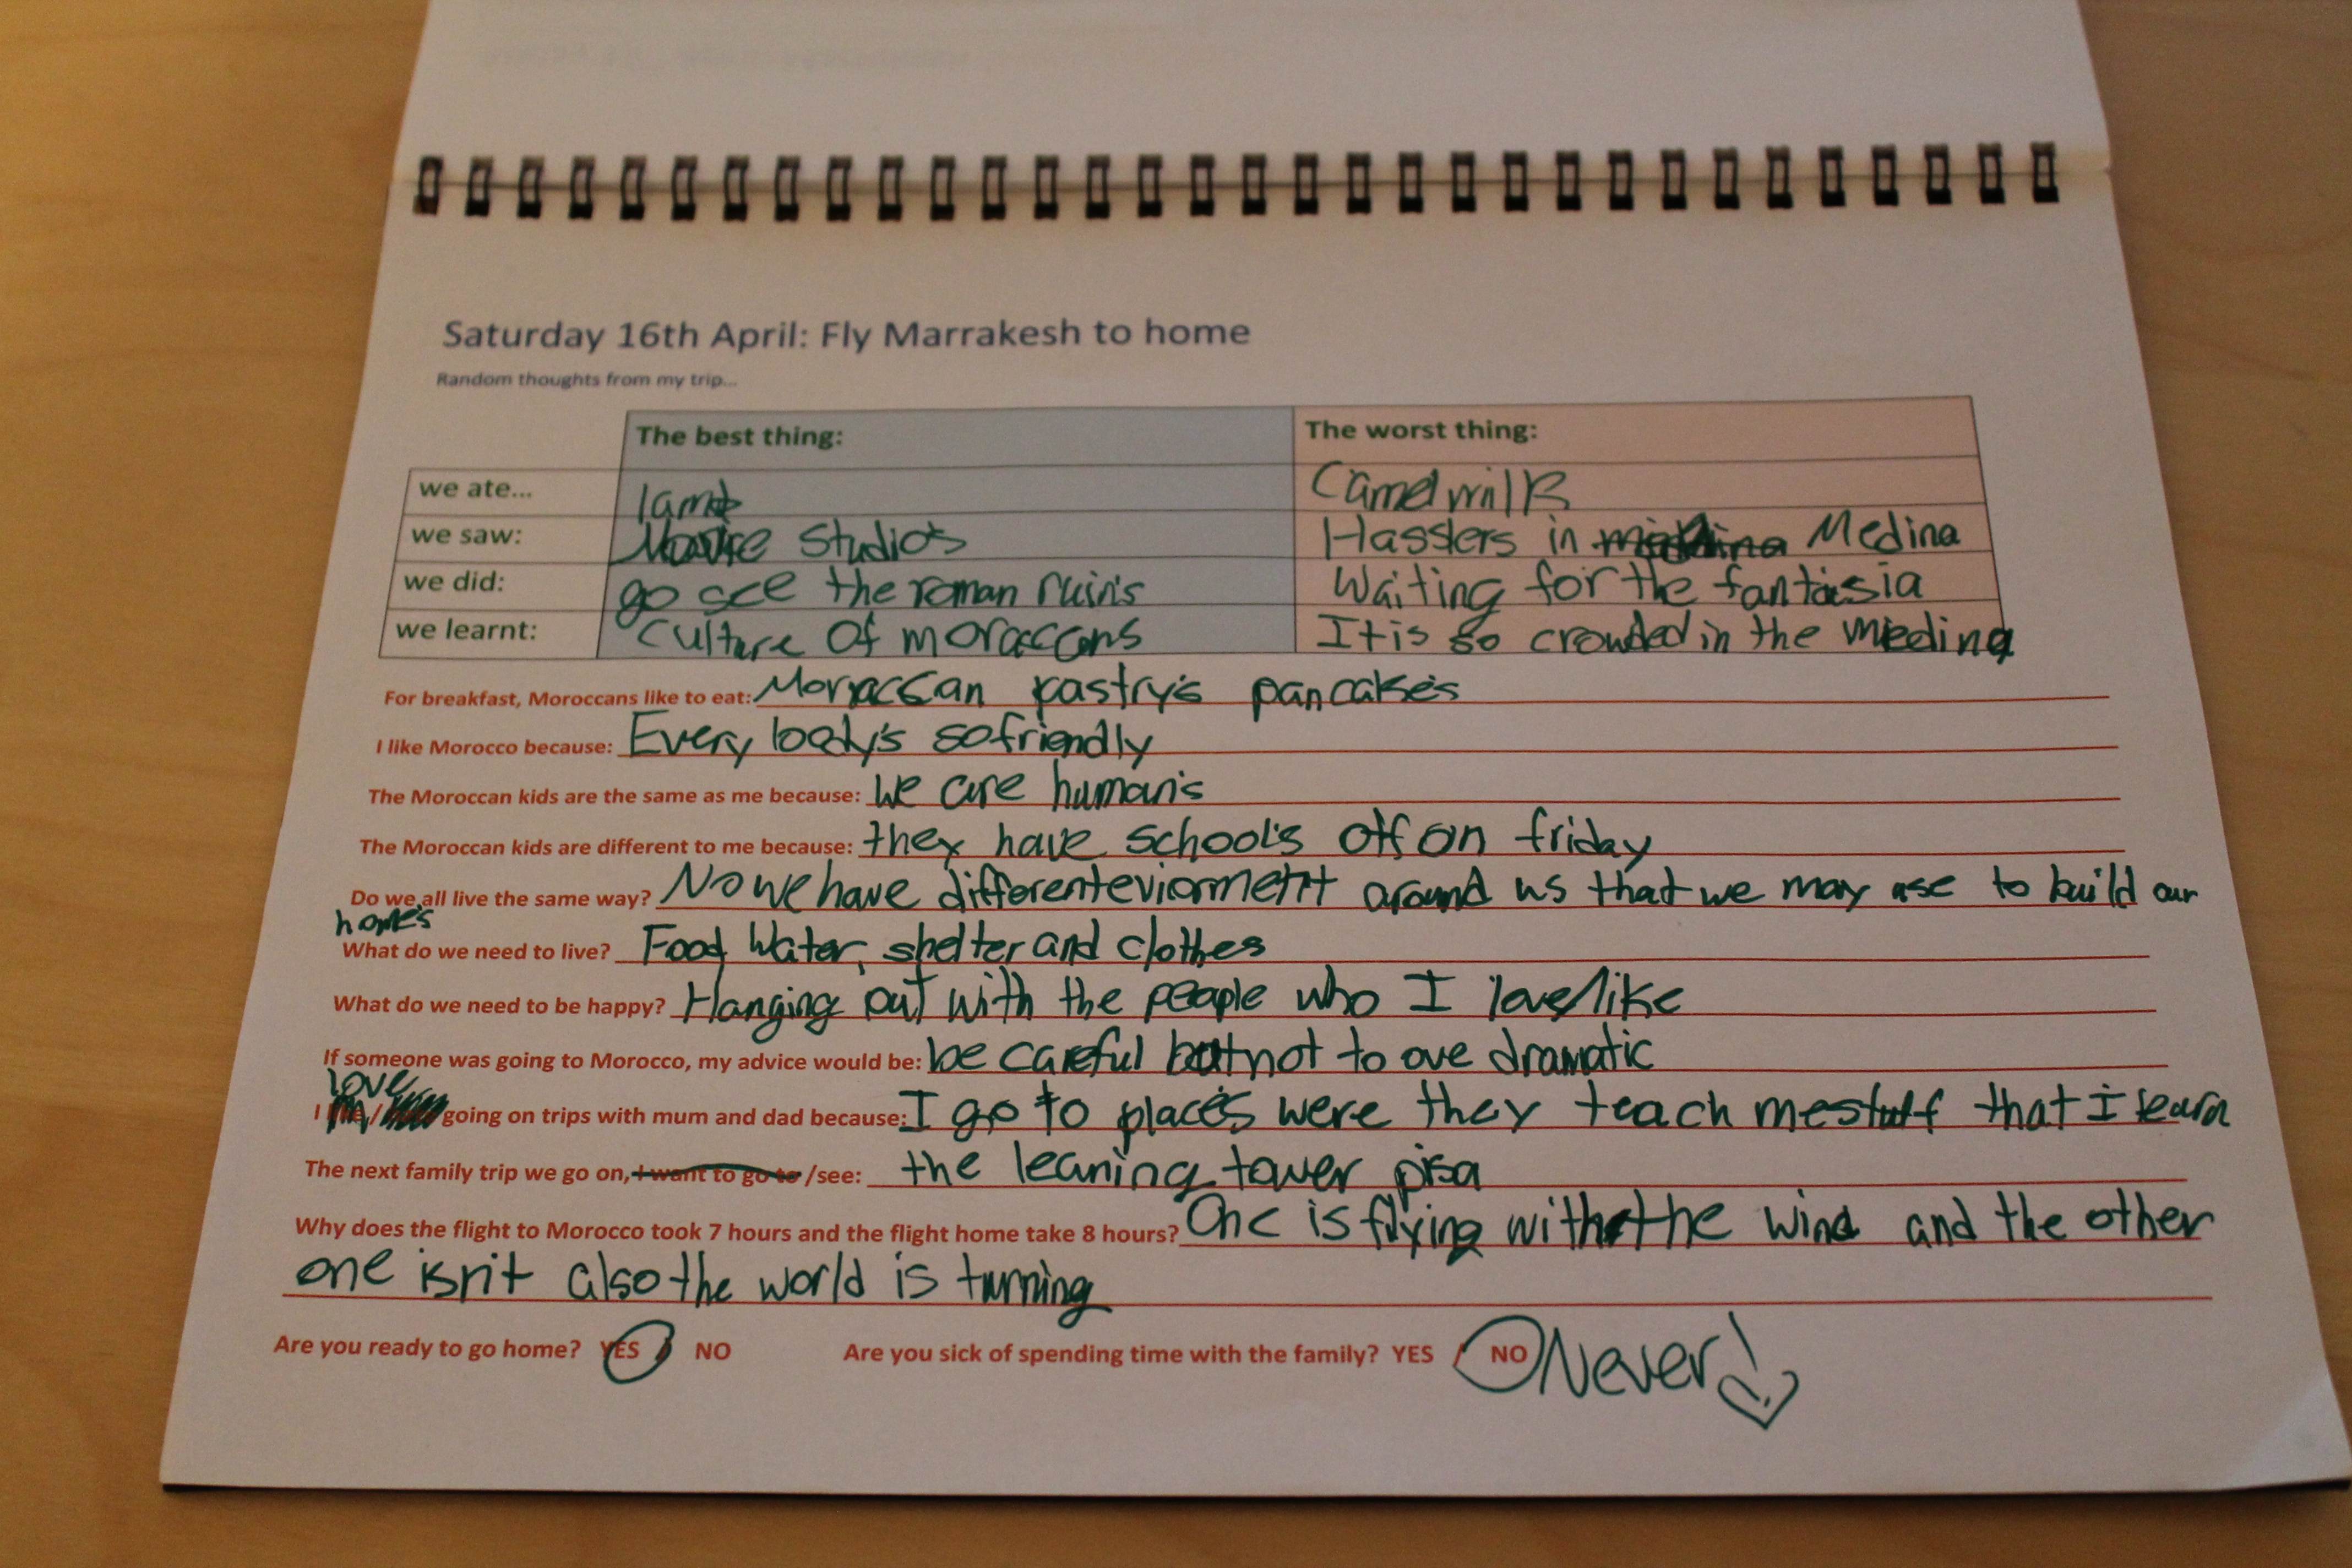 Saturday 16th April: Fly Marrakesh to home
Random thoughts from my trip...
The best thing: The worst thing:
we ate... lamb Camel milk
we saw: Movie studio's Hasslers in Medina
we did: go see the roman ruin's Waiting for the fantasia
we learnt: Culture of moraccons It is so crowded in the medina
For breakfast, Moroccans like to eat: Morraccan pastry's pancake's
I like Morocco because: Every body's so friendly
The Moroccan kids are the same as me because: We are human's
The Moroccan kids are different to me because: they have school's off on friday
Do we all live the same way? No we have different eviorment around us that we may use to build our
home's
What do we need to live? Food Water, shelter and clothes
What do we need to be happy? Hanging out with the people who I love/like
If someone was going to Morocco, my advice would be: be careful but not to ove dramatic
love
I / going on trips with mum and dad because: I go to place's were they teach me stuff that I learn
The next family trip we go on, I want to go to /see: the leaning tower pisa
Why does the flight to Morocco took 7 hours and the flight home take 8 hours? One is flying with the wind and the other
one isn't also the world is turning
Are you ready to go home? YES / NO Are you sick of spending time with the family? YES / NO Never!